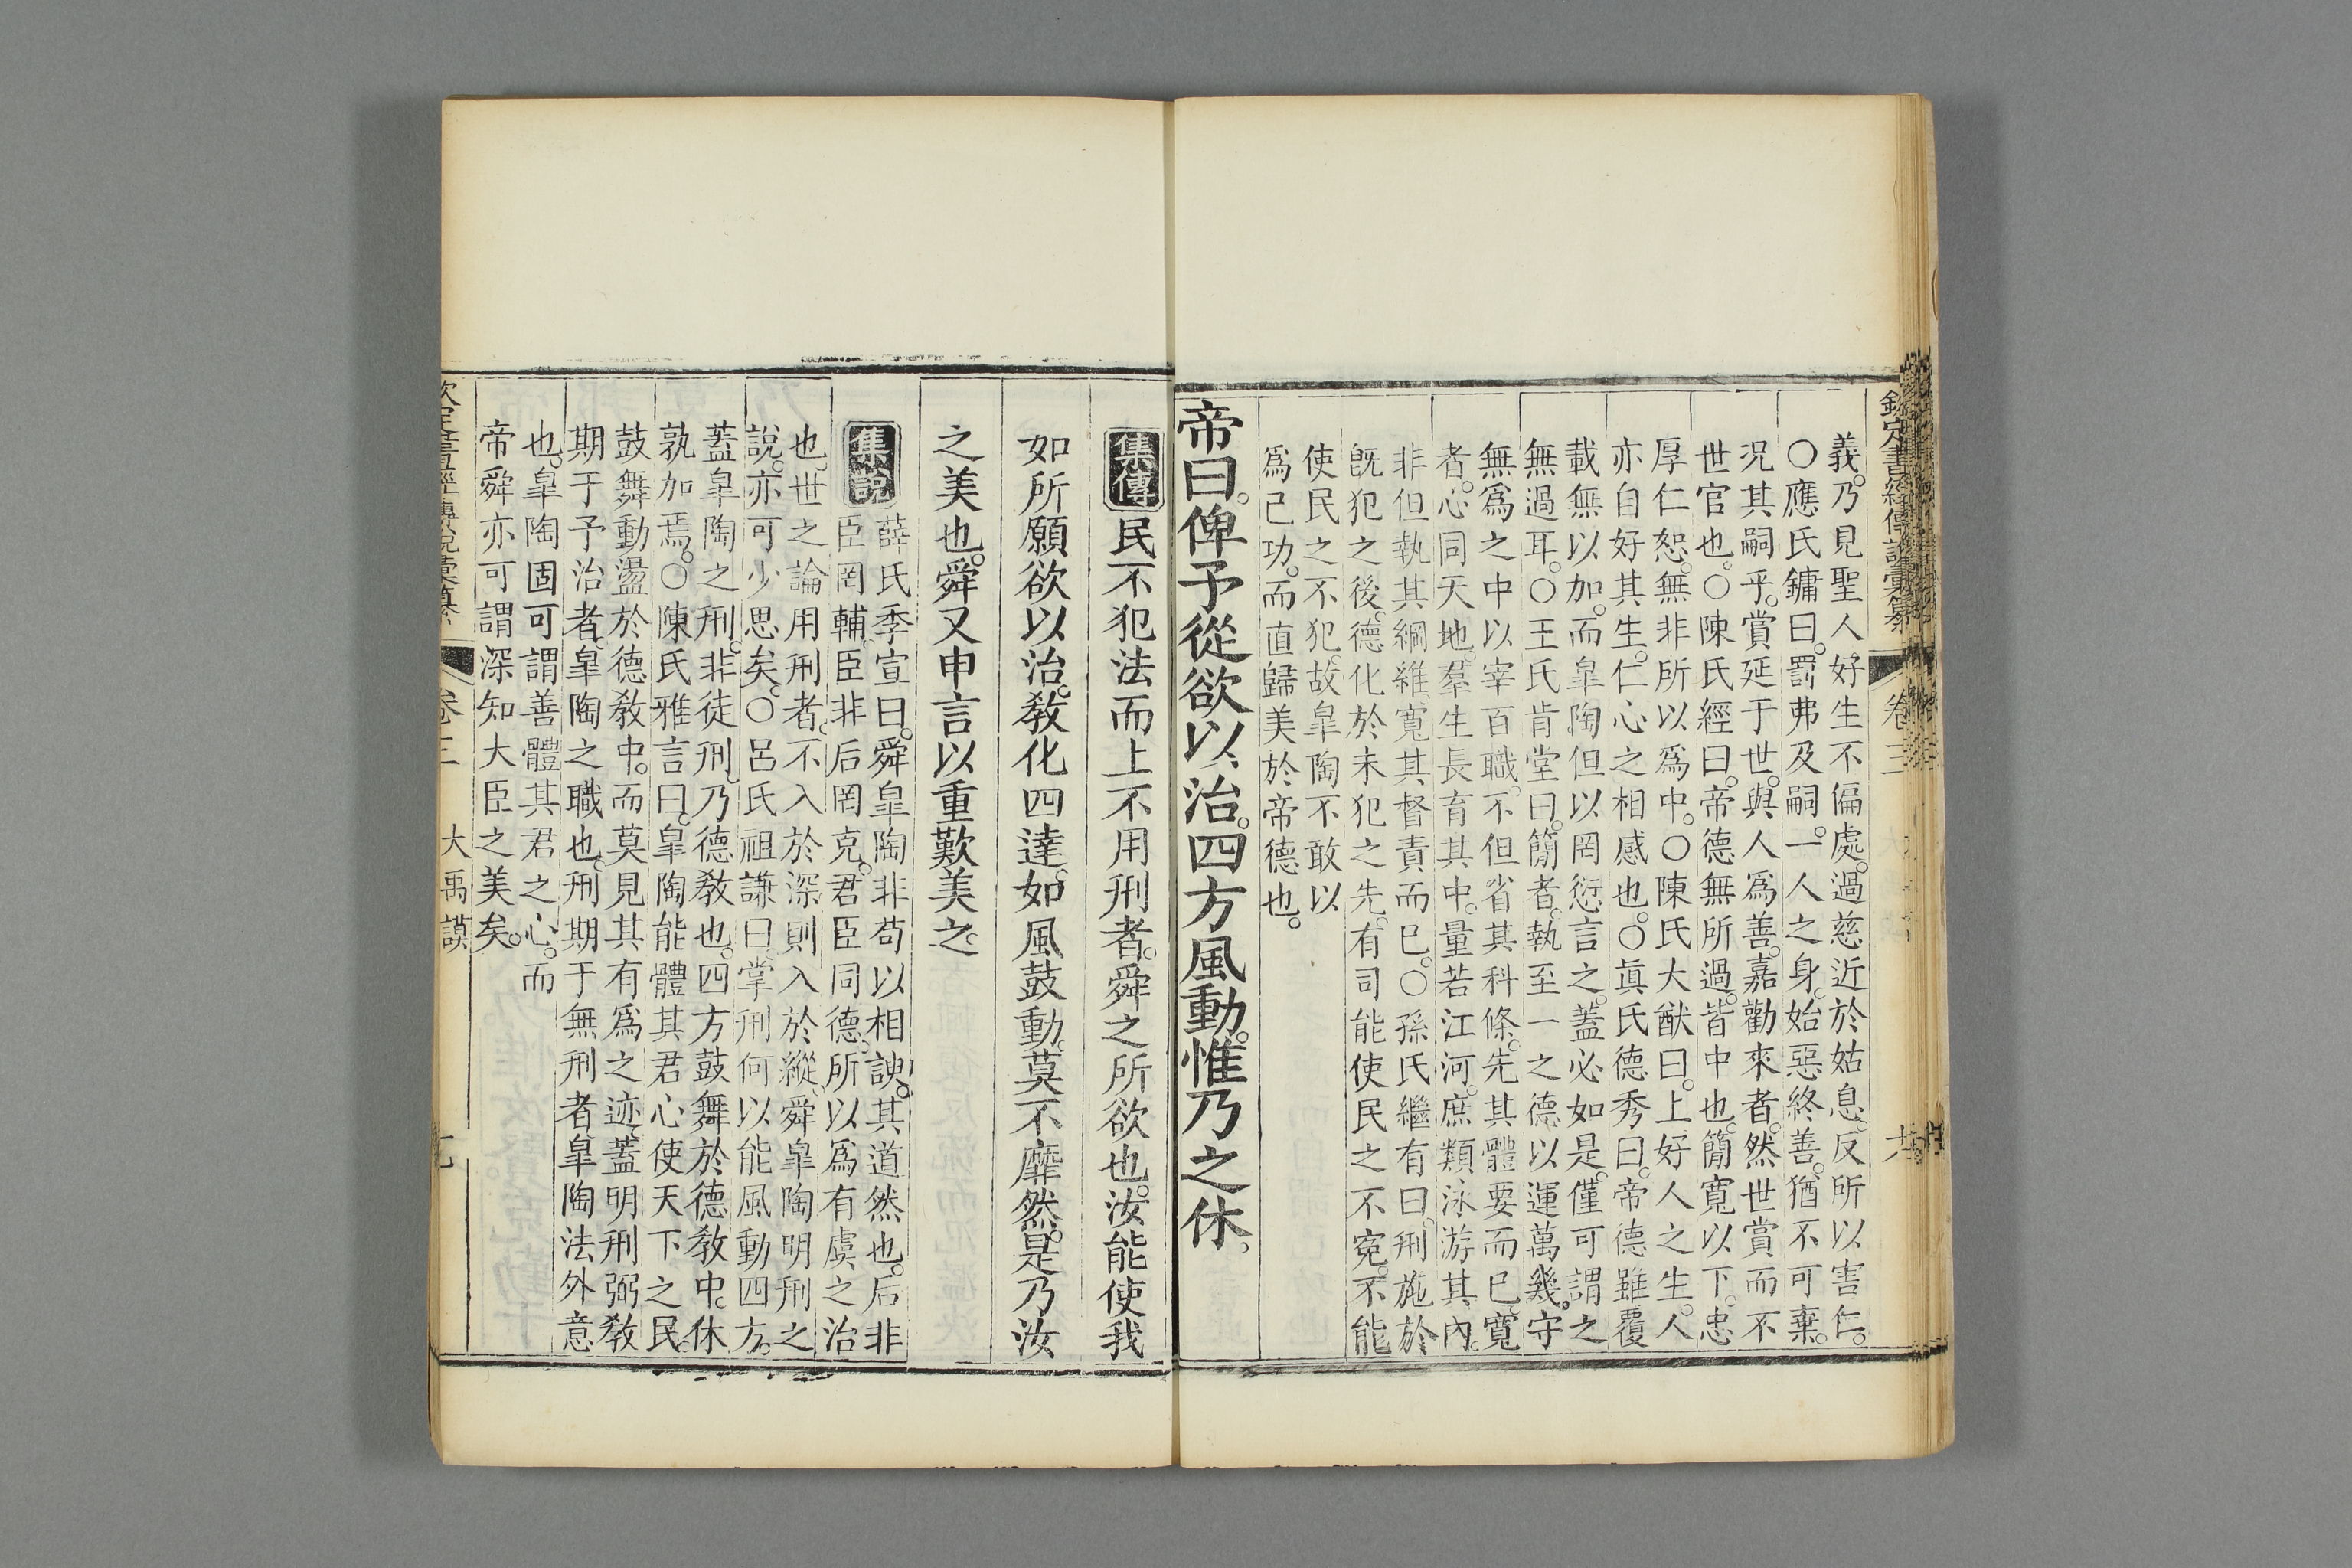 欽定書經傳說彙纂
卷三
六
義。乃見聖人。好生不偏處。過慈近於姑息。反所以害仁。
○應氏鏞曰。罰弗及嗣。一人之身。始惡終善。猶不可棄。
況其嗣乎。賞延于世。與人爲善。嘉勸來者。然世賞而不
世官也。○陳氏經曰。帝德無所過。皆中也。簡寬以下。忠
厚仁恕。無非所以爲中。○陳氏大猷曰。上好人之生。人
亦自好其生。仁心之相感也。○眞氏德秀曰。帝德雖覆
載無以加。而皐陶但以罔愆言之。蓋必如是。僅可謂之
無過耳。○王氏肯堂曰。簡者。執至一之德以運萬幾。守
無爲之中以宰百職。不但省其科條。先其體要而已。寬
者。心同天地。羣生長育其中。量若江河。庶類泳游其內。
非但執其綱維。寬其督責而已。○孫氏繼有曰。刑施於
旣犯之後。德化於未犯之先。有司能使民之不寃。不能
使民之不犯。故皐陶不敢以
爲己功。而直歸美於帝德也。
帝曰。俾予從欲以治。四方風動。惟乃之休。
集傳 民不犯法而上不用刑者。舜之所欲也。汝能使我
如所願欲以治。敎化四達。如風鼓動。莫不靡然。是乃汝
之美也。舜又申言以重歎美之。
集說 薛氏季宣曰。舜皐陶非苟以相諛。其道然也。后非
臣罔輔。臣非后罔克。君臣同德。所以爲有虞之治
也。世之論用刑者。不入於深則入於縱。舜皐陶明刑之
說。亦可少思矣。○呂氏祖謙曰。掌刑何以能風動四方。
蓋皐陶之刑。非徒刑。乃德敎也。四方鼓舞於德敎中。休
孰加焉。○陳氏雅言曰。皐陶能體其君心使天下之民。
鼓舞動盪於德敎中。而莫見其有爲之迹。蓋明刑弼敎
期于予治者。皐陶之職也。刑期于無刑者。皐陶法外意
也。皐陶固可謂善體其君之心。而
帝舜亦可謂深知大臣之美矣。
欽定書經傳說彙纂
卷三
大禹謨